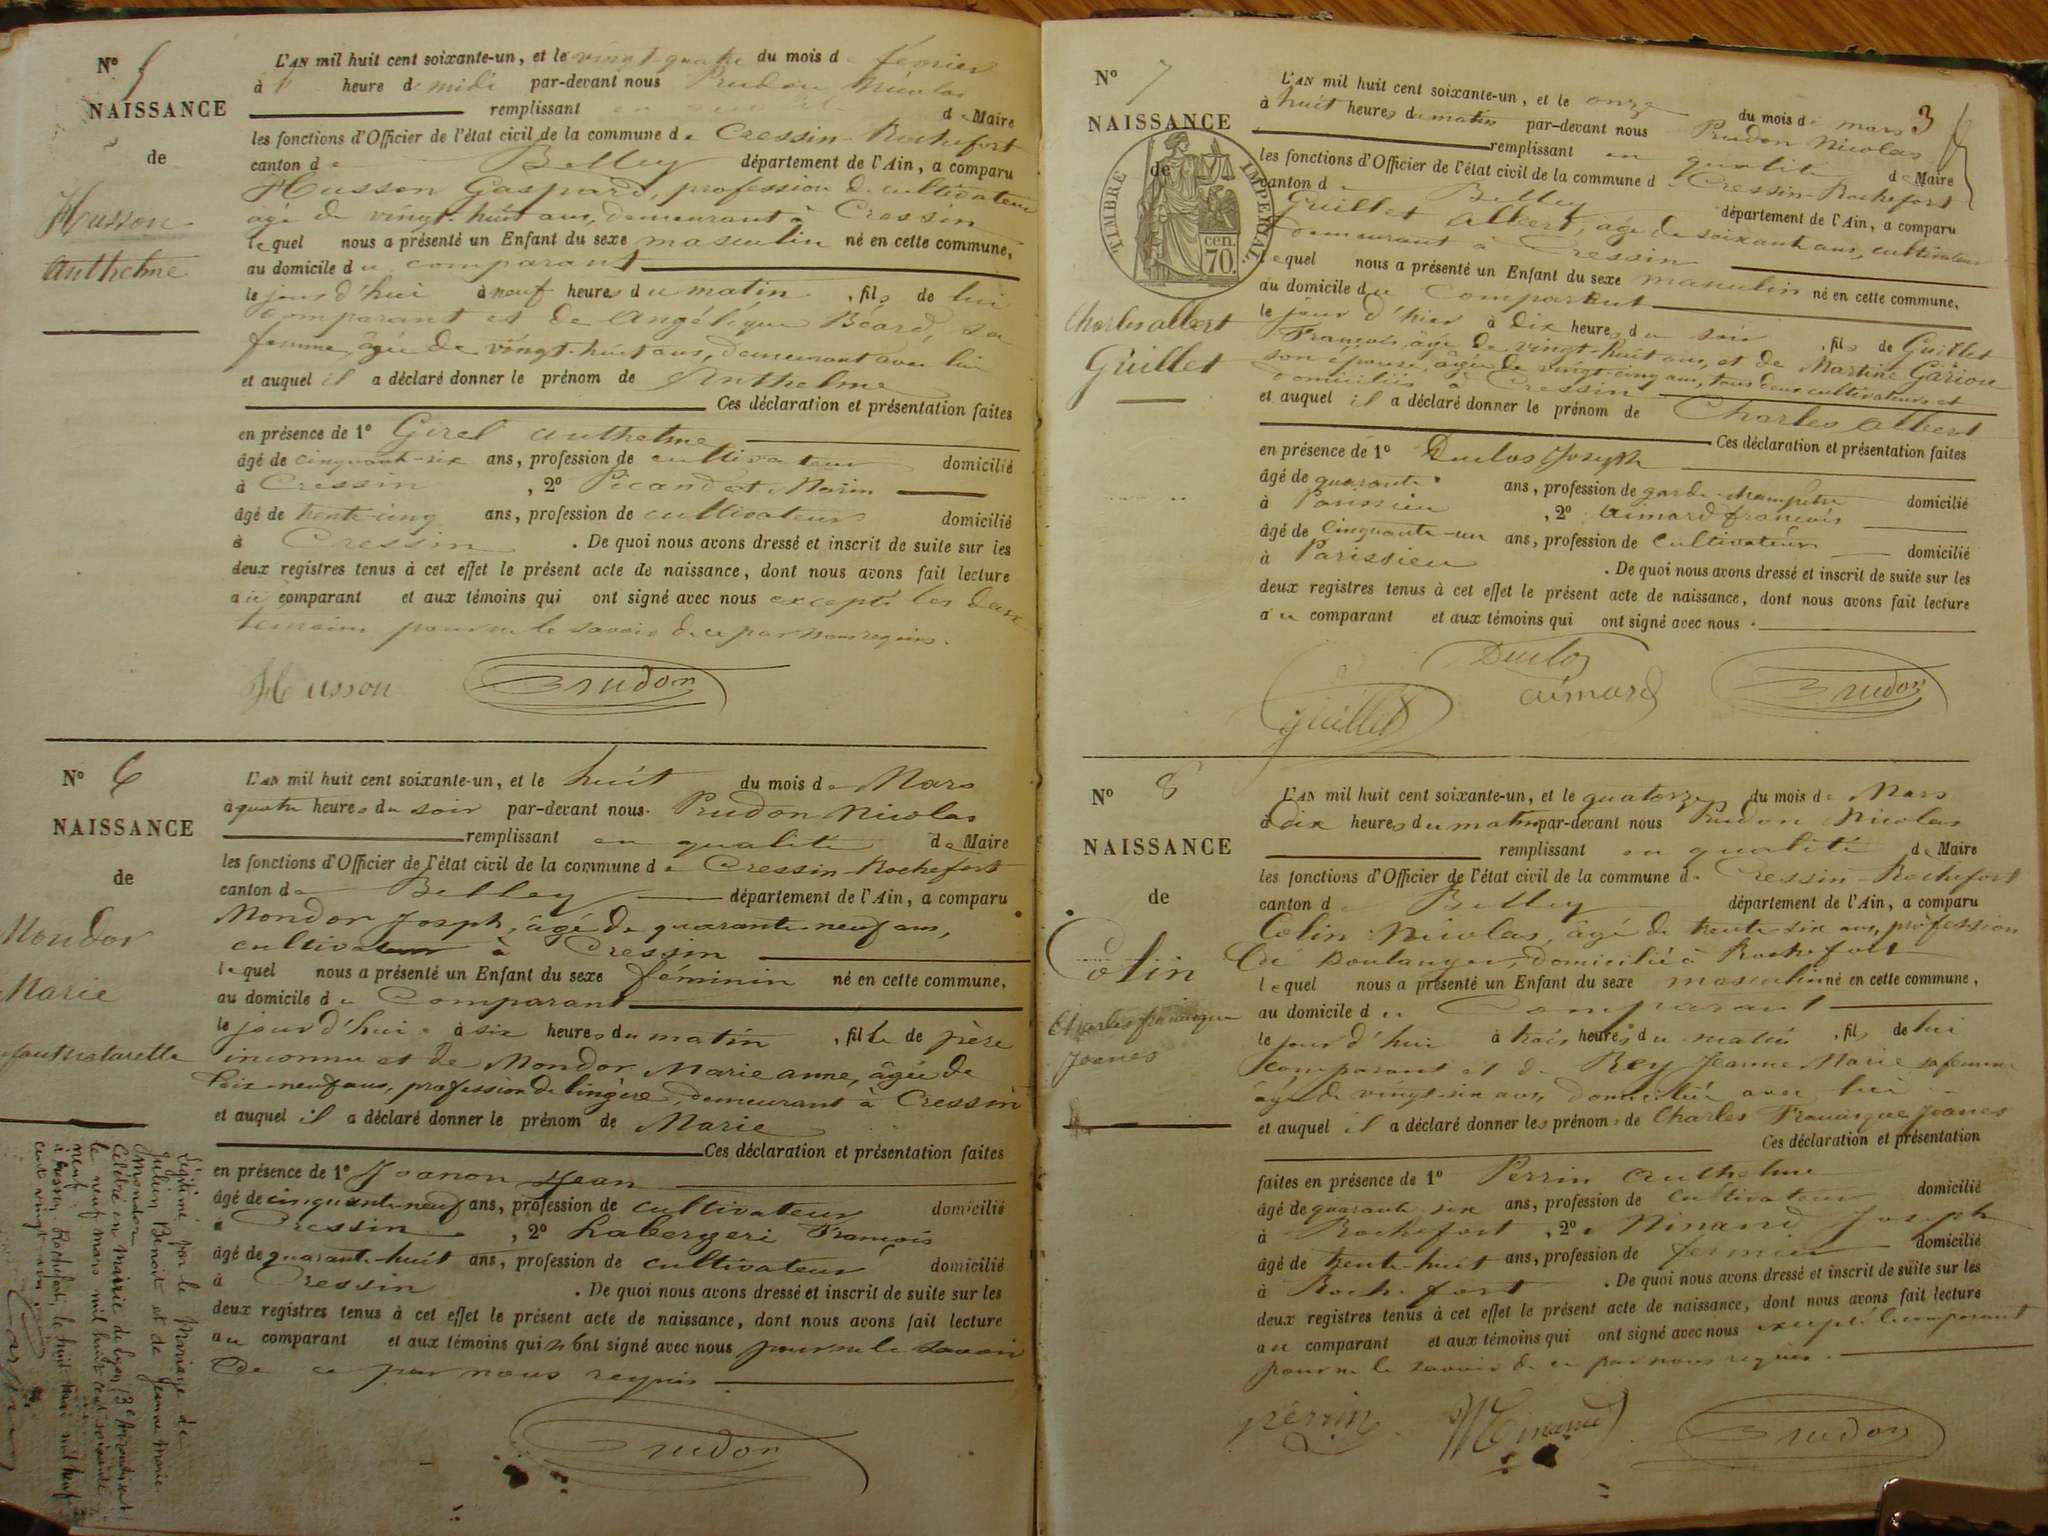 N° 5
NAISSANCE
de
Husson
Anthelme
L'AN mil huit cent soixante-un, et le vingt-quatre du mois de février
à heure de midi par-devant nous Prudon Nicolas
remplissant en qualité de Maire
les fonctions d'Officier de l'état civil de la commune de Cressin-Rochefort
canton de Belley département de l'Ain, a comparu
Husson Gaspard, profession de cultivateur
âgé de vingt-huit ans, demeurant à Cressin
lequel nous a présenté un Enfant du sexe masculin né en cette commune,
au domicile du comparant
le jour d'hui à neuf heures du matin, fils de lui
comparant et de Angélique Béard, sa
femme, âgée de vingt-huit ans, demeurant avec lui
et auquel il a déclaré donner le prénom de Anthelme
Ces déclaration et présentation faites
en présence de 1° Girel Anthelme
âgé de cinquante-six ans, profession de cultivateur domicilié
à Cressin, 2° Picandet Marin
âgé de trente-cinq ans, profession de cultivateur domicilié
à Cressin. De quoi nous avons dressé et inscrit de suite sur les
deux registres tenus à cet effet le présent acte de naissance, dont nous avons fait lecture
au comparant et aux témoins qui ont signé avec nous excepté les deux
témoins pour ne le savoir de ce par nous requis.
Husson Prudon
N° 6
NAISSANCE
de
Mondor
Marie
enfant naturelle
L'AN mil huit cent soixante-un, et le huit du mois de Mars
à quatre heures du soir par-devant nous Prudon Nicolas
remplissant en qualité de Maire
les fonctions d'Officier de l'état civil de la commune de Cressin-Rochefort
canton de Belley département de l'Ain, a comparu
Mondor Joseph, âgé de quarante-neuf ans,
cultivateur à Cressin
lequel nous a présenté un Enfant du sexe féminin né en cette commune,
au domicile du Comparant
le jour d'hui à six heures du matin, fille de père
inconnu et de Mondor Marie anne, âgée de
dix-neuf ans, profession de lingère, demeurant à Cressin
et auquel il a déclaré donner le prénom de Marie
Ces déclaration et présentation faites
en présence de 1° Joanon Jean
âgé de cinquante-neuf ans, profession de cultivateur domicilié
à Cressin, 2° Labergeri François
âgé de quarante-huit ans, profession de cultivateur domicilié
à Cressin. De quoi nous avons dressé et inscrit de suite sur les
deux registres tenus à cet effet le présent acte de naissance, dont nous avons fait lecture
au comparant et aux témoins qui n'ont signé avec nous pour ne le savoir
de ce par nous requis
Prudon
Légitimé par le Mariage de
Julien Benoit et de Jeanne Marie
Mondor
Célébré en mairie de Lyon (3e Arrondissement)
le neuf mars mil huit cent soixante
neuf
à Cressin-Rochefort, le huit mai mil neuf
cent vingt
3
N° 7
NAISSANCE
de
TIMBRE IMPERIAL
70. cen.
Charles albert
Guillet
L'AN mil huit cent soixante-un, et le onze du mois de mars
à huit heures du matin par-devant nous Prudon Nicolas
remplissant en qualité de Maire
les fonctions d'Officier de l'état civil de la commune de Cressin-Rochefort
canton de Belley département de l'Ain, a comparu
Guillet Albert, âgé de soixante ans, cultivateur
demeurant à Cressin
lequel nous a présenté un Enfant du sexe masculin né en cette commune,
au domicile du Comparant
le jour d'hier à dix heures du soir, fils de Guillet
François, âgé de vingt-huit ans, et de Martine Gariou
son épouse, âgée de vingt-cinq ans, tous deux cultivateurs et
domiciliés à Cressin
et auquel il a déclaré donner le prénom de Charles Albert
Ces déclaration et présentation faites
en présence de 1° Duclos Joseph
âgé de quarante ans, profession de garde-champêtre domicilié
à Parissieu, 2° Aimard françois
âgé de cinquante-un ans, profession de cultivateur domicilié
à Parissieu. De quoi nous avons dressé et inscrit de suite sur les
deux registres tenus à cet effet le présent acte de naissance, dont nous avons fait lecture
au comparant et aux témoins qui ont signé avec nous.
Duclos
Guillet aimard Prudon
N° 8
NAISSANCE
de
Colin
Charles francisque
Joanes
L'AN mil huit cent soixante-un, et le quatorze du mois de Mars
à dix heures du matin par-devant nous Prudon Nicolas
remplissant en qualité de Maire
les fonctions d'Officier de l'état civil de la commune de Cressin-Rochefort
canton de Belley département de l'Ain, a comparu
Colin Nicolas, âgé de trente-six ans, profession
de Boulanger, domicilié à Rochefort
lequel nous a présenté un Enfant du sexe masculin né en cette commune,
au domicile du Comparant
le jour d'hui à trois heures du matin, fils de lui
comparant et de Rey Jeanne Marie sa femme
âgée de vingt-six ans, domiciliée avec lui
et auquel il a déclaré donner les prénoms de Charles Francisque Joanes
Ces déclaration et présentation
faites en présence de 1° Perrin Anthelme
âgé de quarante-six ans, profession de cultivateur domicilié
à Rochefort, 2° Minand Joseph
âgé de trente-huit ans, profession de fermier domicilié
à Rochefort. De quoi nous avons dressé et inscrit de suite sur les
deux registres tenus à cet effet le présent acte de naissance, dont nous avons fait lecture
au comparant et aux témoins qui ont signé avec nous excepté le comparant
pour ne le savoir de ce par nous requis.
Perrin Minand Prudon